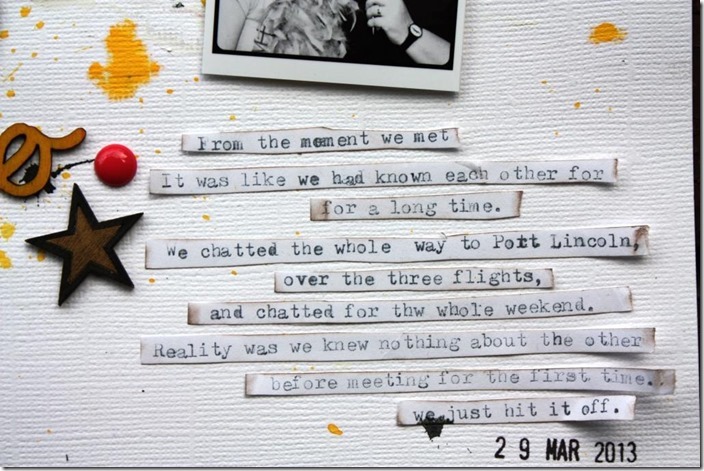 From the moment we met
It was like we had known each other for
for a long time.
We chatted the whole way to Port Lincoln,
over the three flights,
and chatted for thw whole weekend.
Reality was we knew nothing about the other
before meeting for the first time.
we just hit it off.
29 MAR 2013